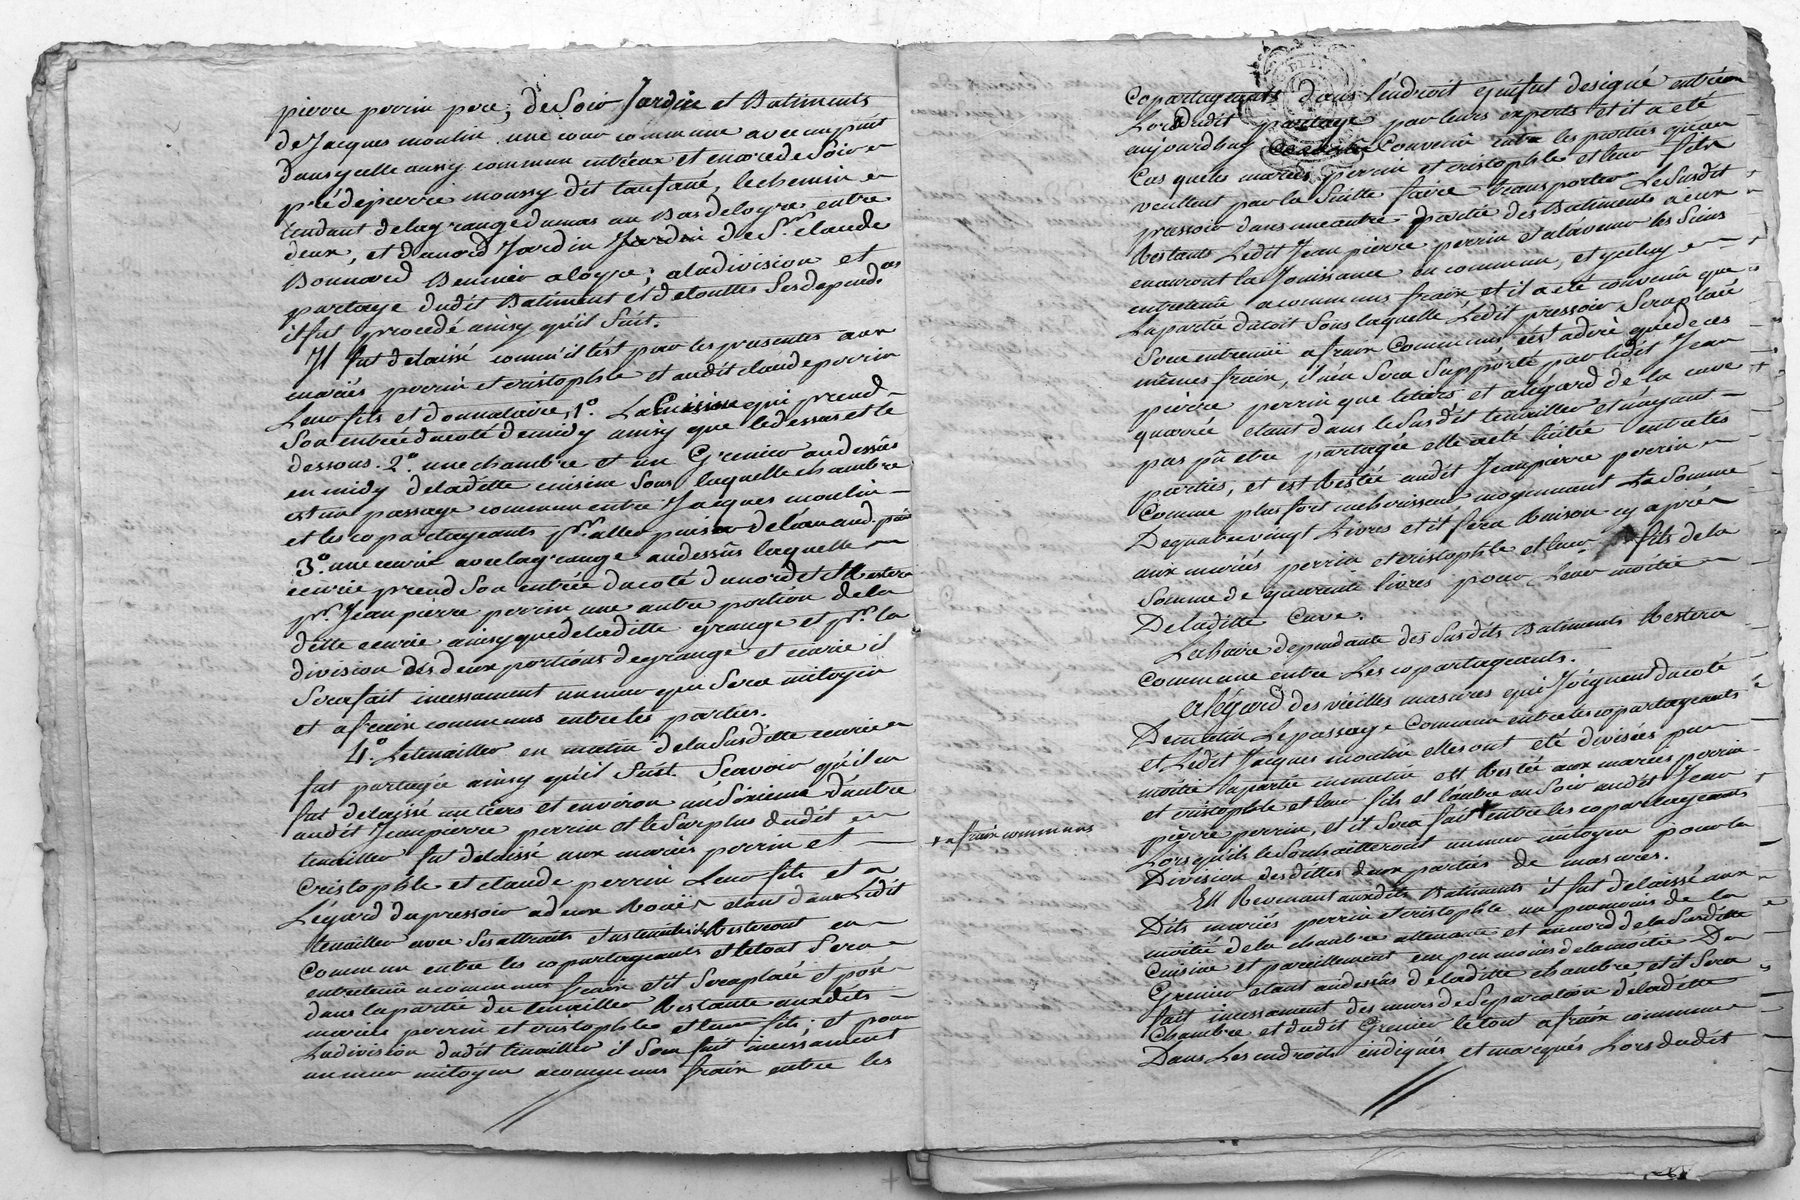 pierre perrin pere; de Soir Jardin et Batiments
de Jacques moulin une cour commune avec un puit
dans ycelle aussy commun entr'eux et encore de Soir
pré de pierre moussy dit taufané, le chemin
tendant de la grange dumas au Bas de logre entre
deux, et de nord Jardin Jardin de Sr. claude
Bonnard Bennier a logre; a la division et
partage dudit Batiment et de touttes Ses depend.ces
il fut procedé ainsy qu'il Suit.
Il fut delaissé comm'il l'est par les presentes aux
mariés perrin et cristophle et audit claude perrin
Leur fils et donnataire, 1º. La Cuisine qui prend
Son entrée du coté de midy ainsy que le dessus et le
dessous. 2º. une chambre et un Grenier au dessûs
en midy de la ditte cuisine Sous laquelle chambre
est un passage commun entre Jacques moulin
et les copartageants pr. aller puiser de l'eau aud. puit
3º. une ecurie avec la grange au dessûs laquelle
ecurie prend Son entrée du coté du nord et il Restera
pr. Jean pierre perrin une autre portion de la
ditte ecurie ainsy que de la ditte grange et pr. la
division des deux portions de grange et ecurie il
Sera fait incessament un mur qui Sera mitoyen
et a frais communs entre les parties.
4º. Le tenailler en matin de la Susditte ecurie
fut partagé ainsy qu'il Suit Scavoir qu'il en
fut delaissé un tiers et environ un Sixieme d'autre
audit Jean pierre perrin et le Surplus dudit
tenailler fut delaissé aux mariés perrin et
Cristophle et claude perrin Leur fils et a
L'égard du pressoir a deux Roües etant dans Ledit
tenailler avec Ses attraits et ustensiles Resteront en
Commun entre les copartageants et le tout Sera
entretenû a communs frais et il Sera placé et posé
dans la partie du tenailler Restante auxdits
mariés perrin et cristophle et leur fils; et pour
La division dudit tenailler il Sera fait incessament
un mur mitoyen a communs frais entre les
Copartageants dans l'endroit qui fut designé entr'eux
Lors dudit partage par leurs experts et il a été
aujourdhuy Convenû entre les parties qu'au
Cas que les mariés perrin et cristophle et leur fils
veuillent par la Suitte faire transporter Le Susdit
pressoir dans une autre partie des Batiments a eux
Restants Ledit Jean pierre perrin et a l'avenir les Siens
en auront la Jouissance en commun, et yceluy
entretenû a communs frais et il a eté convenû que
La partie du toit Sous laquelle Ledit pressoir Sera placé
Sera entrenüe a frais Communs c'est adire que de ces
mêmes frais, il n'en Sera Supporté par ledit Jean
pierre perrin que le tiers et a légard de la cuve
quarrée etant dans le Susdit tenailler et n'ayant
pas pû etre partagée elle a eté licitée entre les
parties, et est Restée audit Jean pierre perrin
Comme plus fort encherisseur moyennant La Somme
De quatre vingt Livres et il fera Raison cy après
aux mariés perrin et cristophle et leur fils de la
Somme de quarente livres pour Leur moitié
De laditte Cuve.
L'ehaire dependante des Susdits Batiments Restera
Commune entre Les copartageants.
A l'égard des vieilles masures qui Joignent du coté
De matin Le passage Commun entre les copartageants
et Ledit Jacques moulin elles ont eté divisées par
moitié la partie en matin est Restée aux mariés perrin
et cristophle et leur fils et l'autre au Soir audit Jean
pierre perrin, et il Sera fait + entre les copartageants
+ a frais communs
Lors qu'ils le Souhaitteront un mur mitoyen pour la
Division desdittes deux parties de masures.
En Revenant auxdits Batiments il fut delaissé aux
Dits mariés perrin et cristophle un peu moins de la
moitié de la chambre attenante et au nord de la Susditte
Cuisine et pareillement un peu moins de la moitié Du
Grenier etant au dessûs de laditte chambre et il Sera
fait incessament des murs de Separation de laditte
Chambre et dudit Grenier le tout a frais communs
Dans Les endroits indiqués et marqués Lors dudit